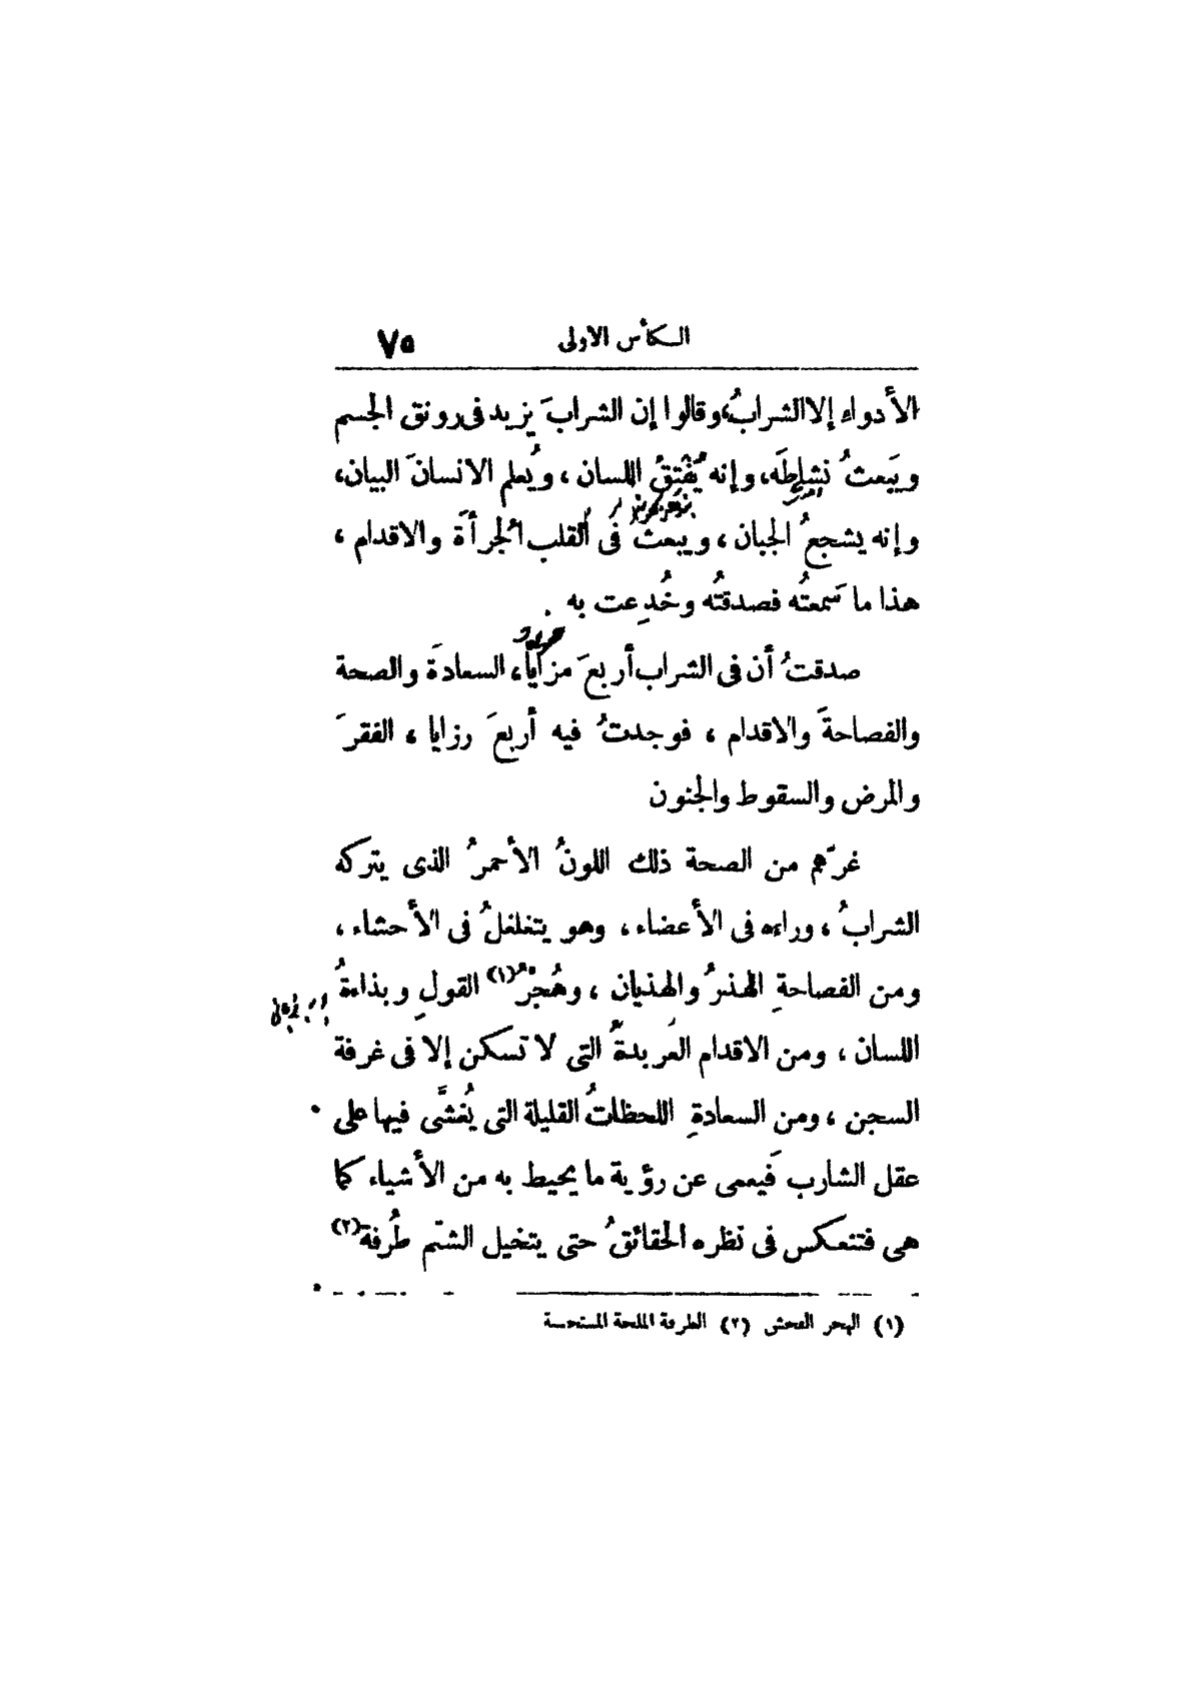 الكأس الاولى ٧٥
الأدواءِ إلا الشرابُ، وقالوا إن الشرابَ يزيد فى رونق الجسم
ويَبعثُ نشاطَه، وإنه يَفْتِقُ اللسان ، ويُعلم الانسانَ البيان،
وإنه يشجعُ الجبان ، ويبعثُ فى القلب الجرأةَ والاقدام ،
هذا ما سَمعتُه فصدقتُه وخُدِعت به .
صدقتُ أن فى الشراب أربعَ مزايا، السعادةَ والصحة
والفصاحةَ والاقدام ، فوجدتُ فيه أربعَ رزايا ، الفقرَ
والمرض والسقوط والجنون
غرّهم من الصحة ذلك اللونُ الأحمرُ الذى يتركه
الشرابُ ، وراءه فى الأعضاء ، وهو يتغلغلُ فى الأحشاء ،
ومن الفصاحةِ الهذرُ والهذيان ، وهُجْرُ(١) القولِ وبذاءةُ
اللسان ، ومن الاقدام العَربدةُ التى لا تسكن إلا فى غرفة
السجن ، ومن السعادةِ اللحظاتُ القليلة التى يُغشَّى فيها على
عقل الشارب فَيعمى عن رؤية ما يحيط به من الأشياء كما
هى فتنعكس فى نظره الحقائقُ حتى يتخيل الشتم طُرفة(٢)
(١) الهجر الفحش (٢) الطرفة الملحة المستحسنة